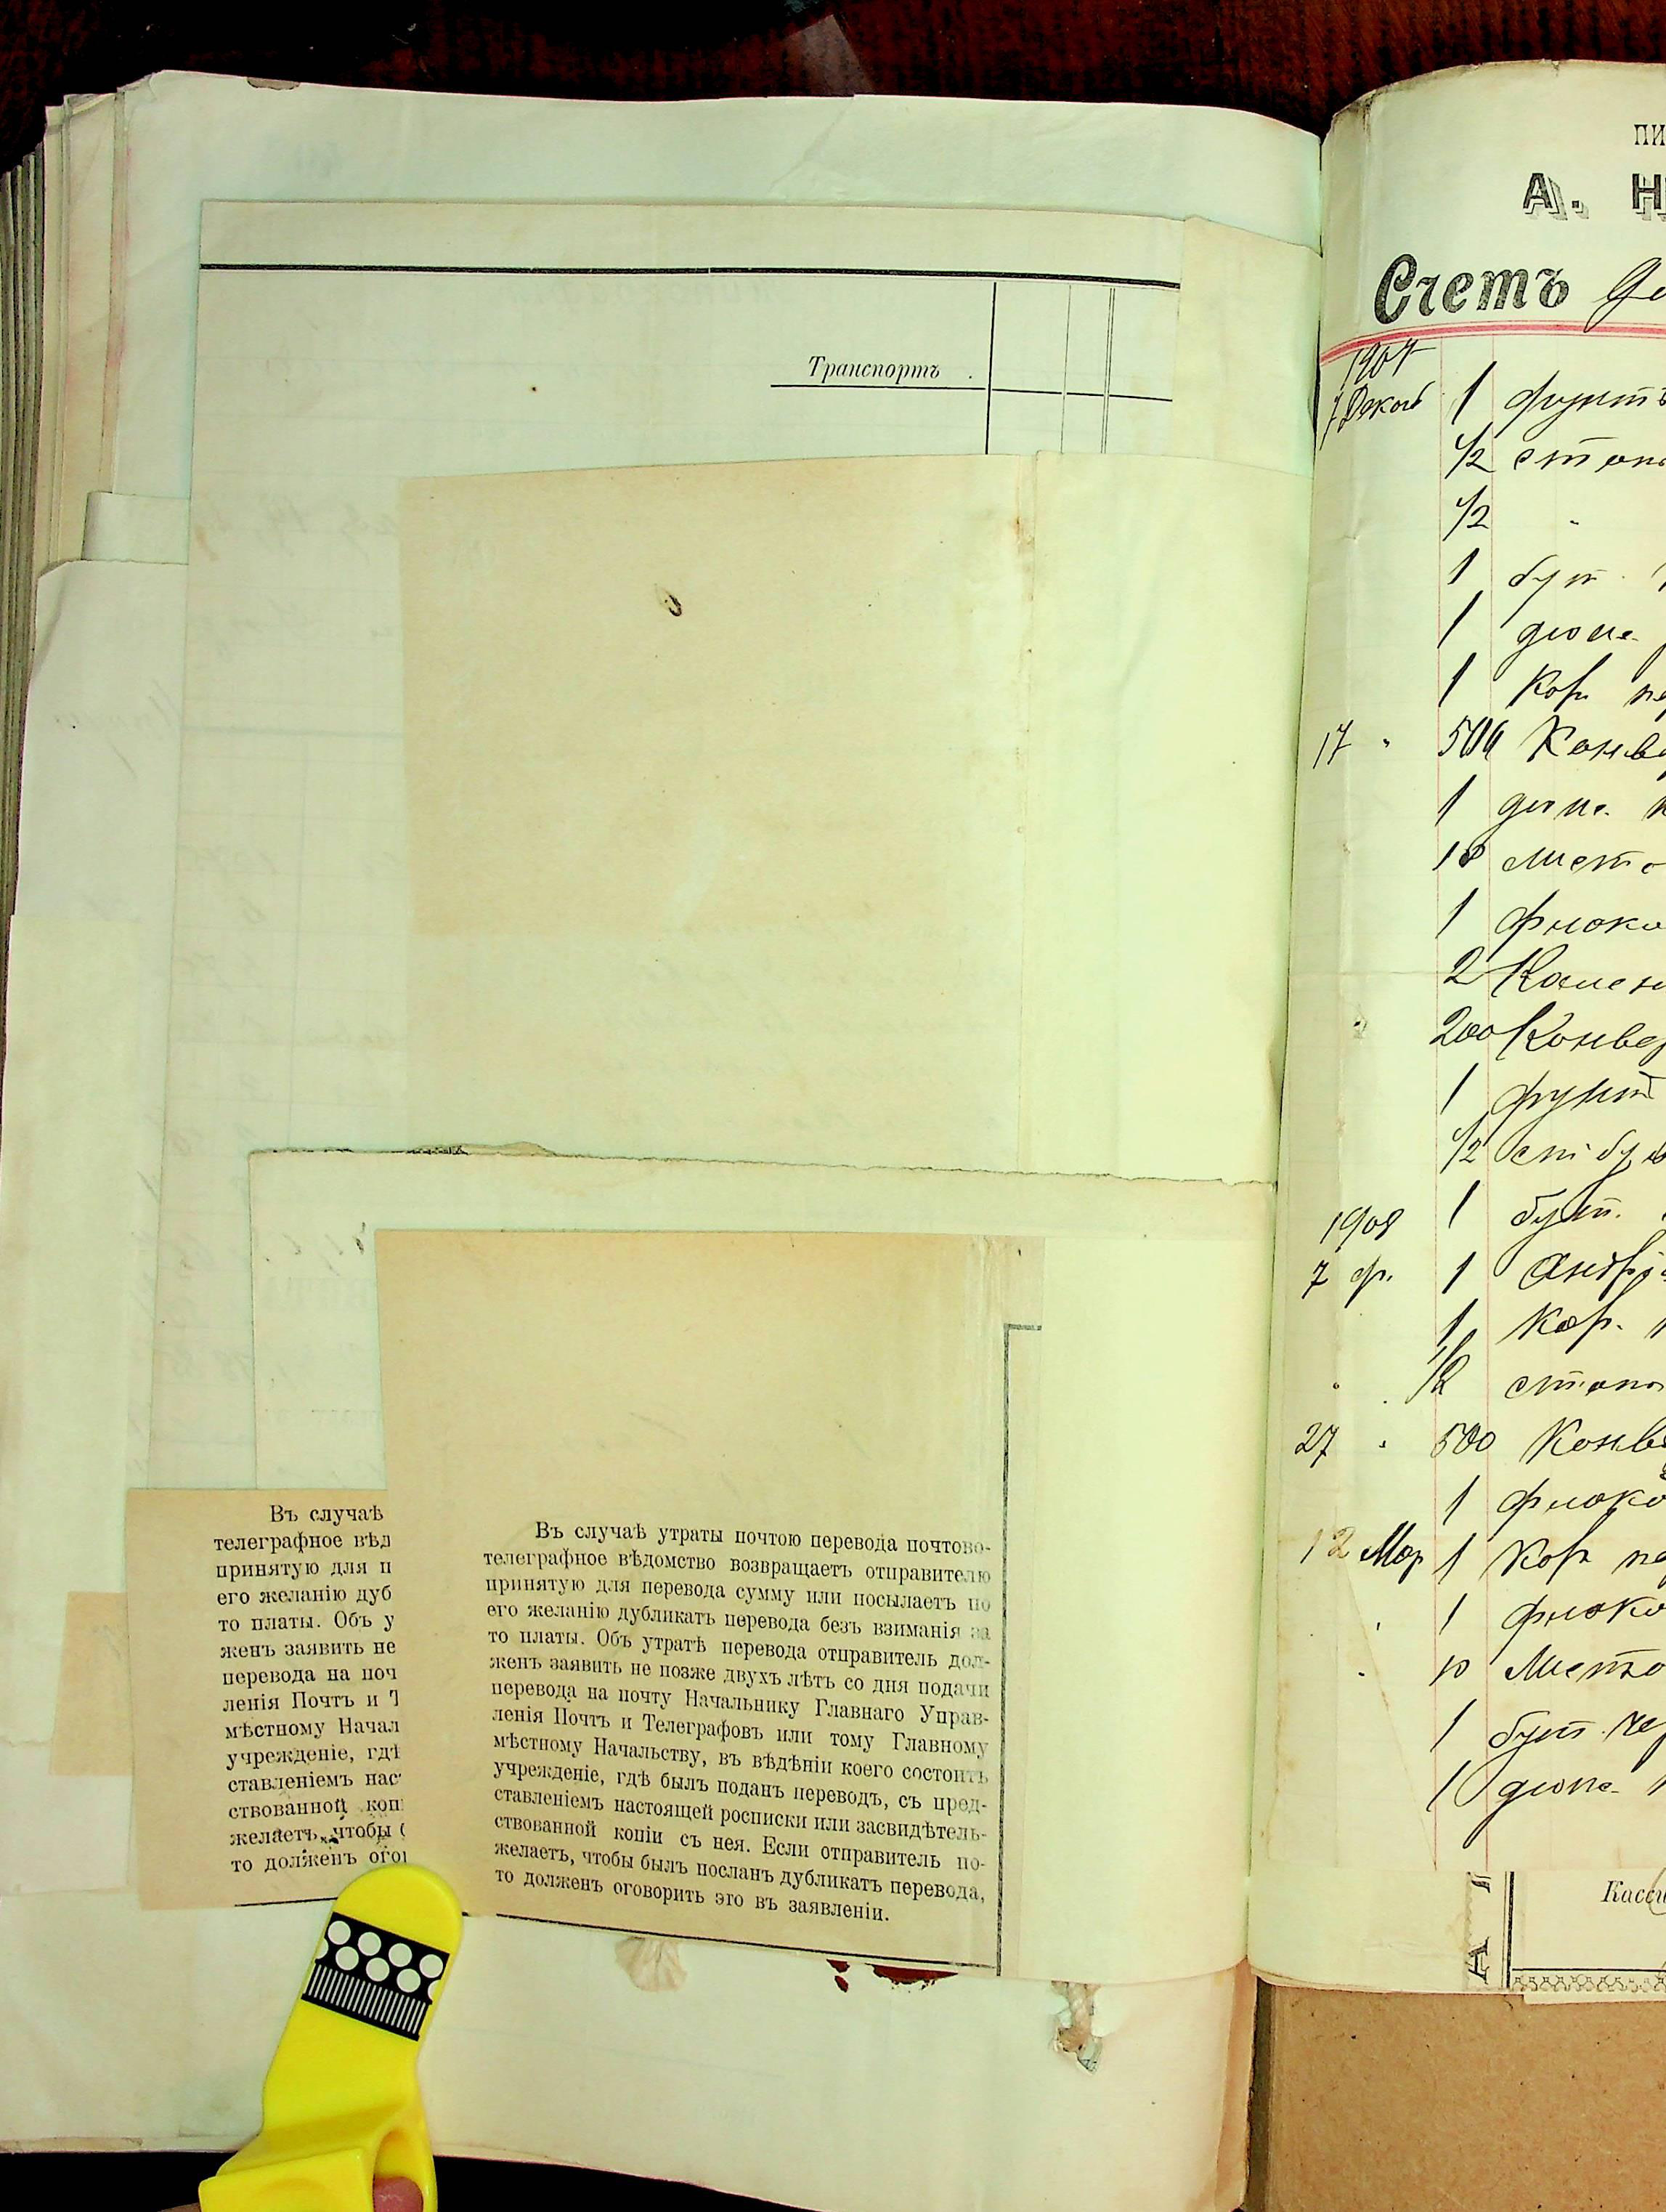 Транспортъ .
Въ случаѣ
телеграфное вѣд
принятую для п
его желанію дуб
то платы. Объ у
женъ заявить не
перевода на поч
ленія Почтъ и Т
мѣстному Начал
учрежденіе, гдѣ
ставленіемъ нас
ствованной коп
желаетъ, чтобы
то долженъ огов
Въ случаѣ утраты почтою перевода почтово-
телеграфное вѣдомство возвращаетъ отправителю
принятую для перевода сумму или посылаетъ по
его желанію дубликатъ перевода безъ взиманія за
то платы. Объ утратѣ перевода отправитель дол-
женъ заявить не позже двухъ лѣтъ со дня подачи
перевода на почту Начальнику Главнаго Управ-
ленія Почтъ и Телеграфовъ или тому Главному
мѣстному Начальству, въ вѣдѣніи коего состоитъ
учрежденіе, гдѣ былъ поданъ переводъ, съ пред-
ставленіемъ настоящей росписки или засвидѣтель-
ствованной копіи съ нея. Если отправитель по-
желаетъ, чтобы былъ посланъ дубликатъ перевода,
то долженъ оговорить это въ заявленіи.
ПИ
А. Н
Счетъ
1907
1 фунтъ
1/2 стопы
1/2 "
1 бут.
1 дюж.
1 Кор. пе
17 " 500 Конве
1 дюж.
10 Листо
1 флако
2
200 Конвер
1 фунт
1/2 ст бу
1908 1 бут.
7 ф. 1
1 Кор.
1/2 стопы
27 " 500 Конве
1 флако
12 Мар 1 Кор пе
1 флако
10 Листо
1 бут. че
1 дюж.
Касси